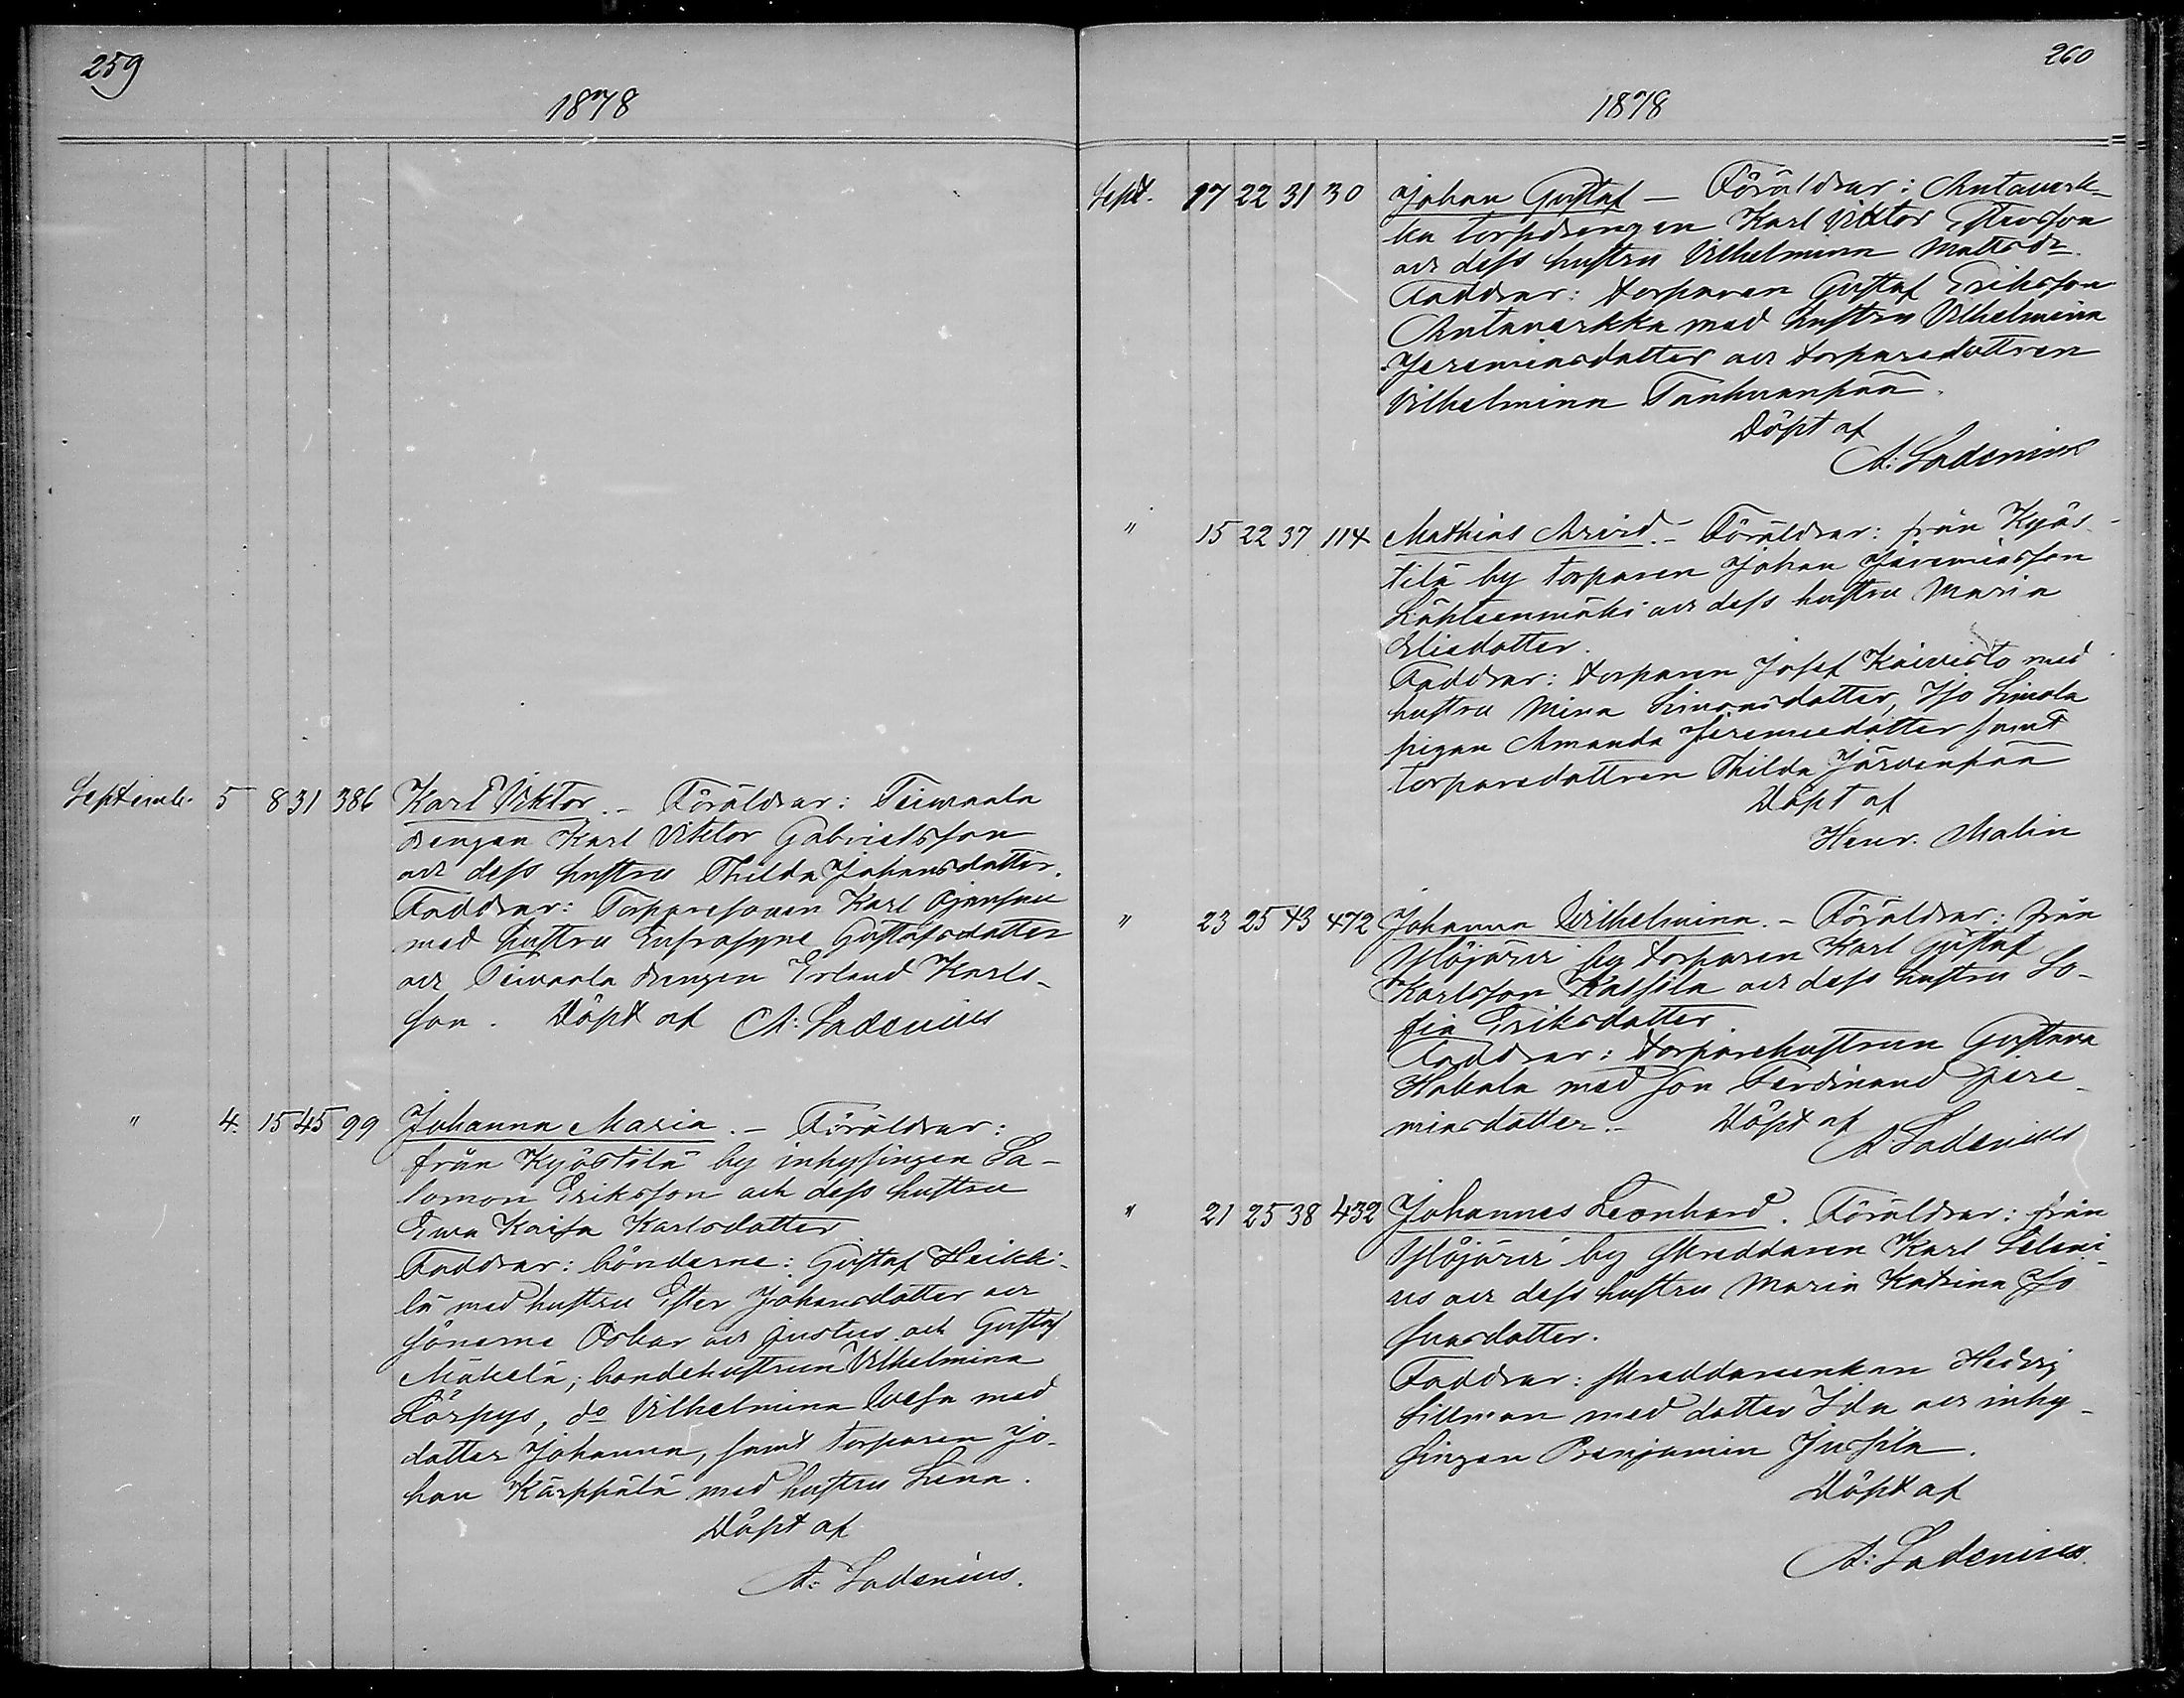 259
1878
Septemb. 5 8 31 386 Karl Viktor. – Föräldrar: Teivaala
drengen Karl Viktor Gabrielsson
och dess hustru Thilda Johansdotter.
Faddrar: Torparesonen Karl Ojansuu
med hustru Eufrosyne Gustafsdotter
och Teivaala drengen Erland Karls-
son. Döpt af A: Ladenius
" 4. 15 45 99 Johanna Maria. – Föräldrar:
från Kyöstilä by inhysingen Sa-
lomon Eriksson och dess hustru
Ewa Kaisa Karlsdotter
Faddrar: bönderne: Gustaf Heikki-
lä med hustru Ester Johansdotter och
sönerne Oskar och Justus och Gustaf
Mäkelä; bondehustrun Vilhelmina
Körpys, do Vilhelmina med
dotter Johanna, samt torparen Jo-
han Kärppälä med hustru Lena.
Döpt af
A: Ladenius.
260
1878
Sept. 17 22 31 30 Johan Gustaf – Föräldrar: Antaverk-
ka torpdrengen Karl Viktor
och dess hustru Vilhelmina Mattsdr
Faddrar: torparen Gustaf Eriksson
Antaverkka med hustru Vilhelmina
Jeremiasdotter och torparedottren
Vilhelmina Tanhuanpää.
Döpt af
A: Ladenius
" 15 22 37 114 Mathias Arvid. – Föräldrar: från Kyös-
tilä by torparen Johan Jeremiasson
Lähteenmäki och dess hustru Maria
Eliedotter.
Faddrar: torparen Josef Koivisto med
hustru Mina Simonsdotter, Iso Simola
pigan Amanda Jeremiedotter samt
torparedottren Thilda Järvenpää
Döpt af
Henr. Malin
" 23 25 43 472 Johanna Wilhelmina. – Föräldrar: från
Ylöjärvi by torparen Karl Gustaf
Karlsson Kassila och dess hustru So-
fia Eriksdotter
Faddrar: torparehustrun Gustava
Hakala med son Ferdinand Jere-
miasdotter. – Döpt af
A Ladenius
" 21 25 38 432 Johannes Leonhard. Föräldrar: från
Ylöjärvi by skreddaren Karl Seleni-
us och dess hustru Maria Katrina Jo
suasdotter.
Faddrar: skreddareenkan Hedvig
Sillman med dotter Ida och inhy-
singen Benjamin Jussila.
Döpt af
A: Ladenius.